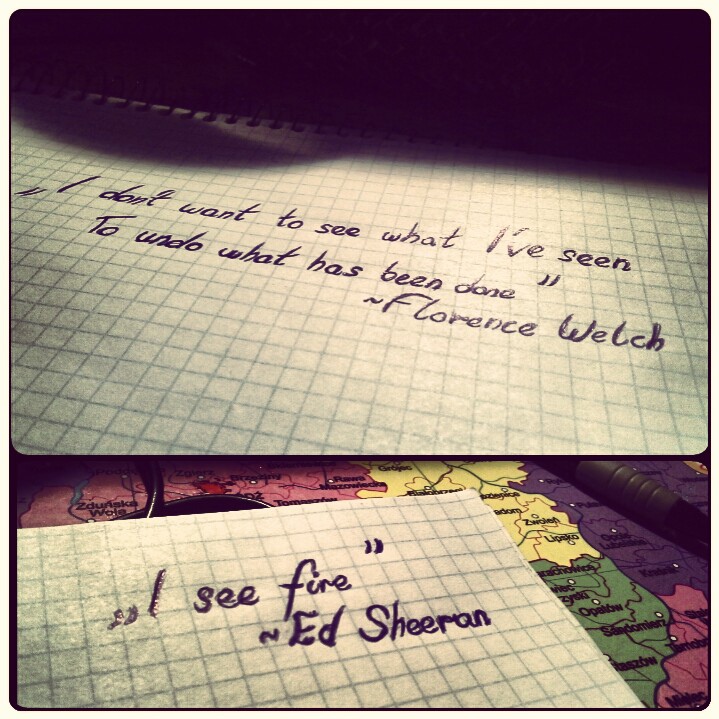 „I don't want to see what I've seen
To undo what has been done”
~Florence Welch
Zduńska
Wola
Zgierz
Rawa
Mazowiecka
Tomaszów
Grójec
Białobrzegi
Zwoleń
Lipsko
Opole
Lubelskie
Kraśnik
Opatów
Sandomierz
Staszów
Mielec
„I see fire”
~Ed Sheeran